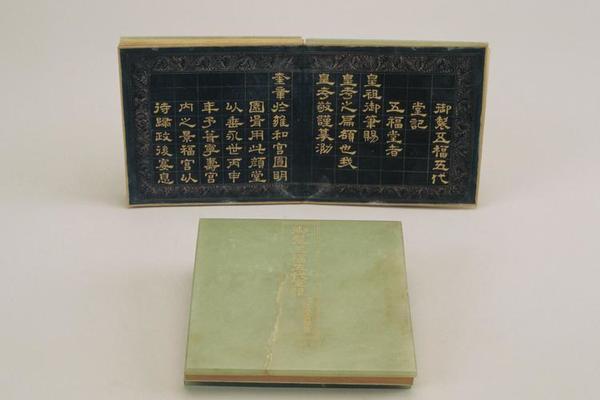 御製五福五代
堂記
五福堂者
皇祖御筆賜
皇考之扁額也我
皇考敬謹摹泐
奎章於雍和宮圓明
園胥用此顏堂
以垂永世丙申
年予葺寧壽宮
內之景福宮以
待歸政後宴息
御製五福五代堂記